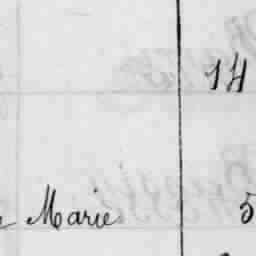 14
Marie 5